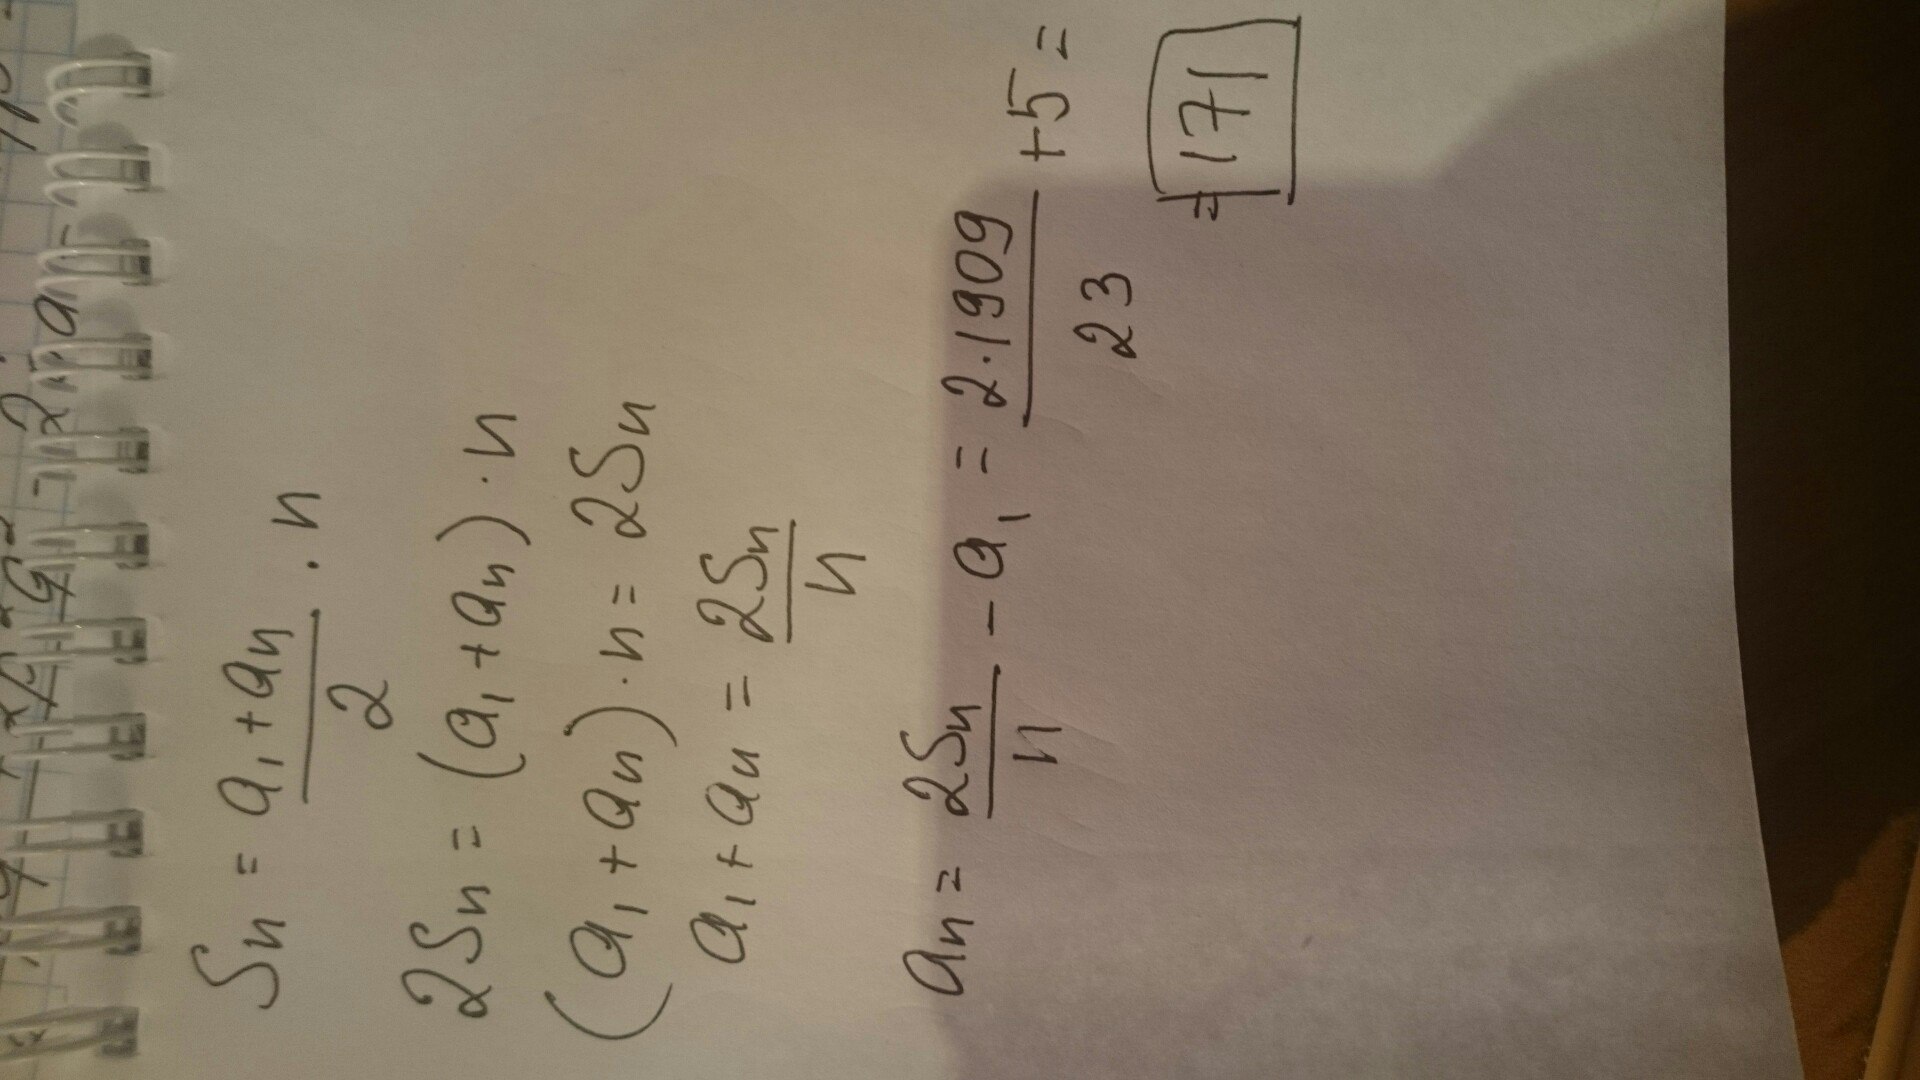 Sn = a1 + an / 2 · n
2Sn = (a1 + an) · n
(a1 + an) · n = 2Sn
a1 + an = 2Sn / n
an = 2Sn / n - a1 = 2·1909 / 23 + 5 =
= 171